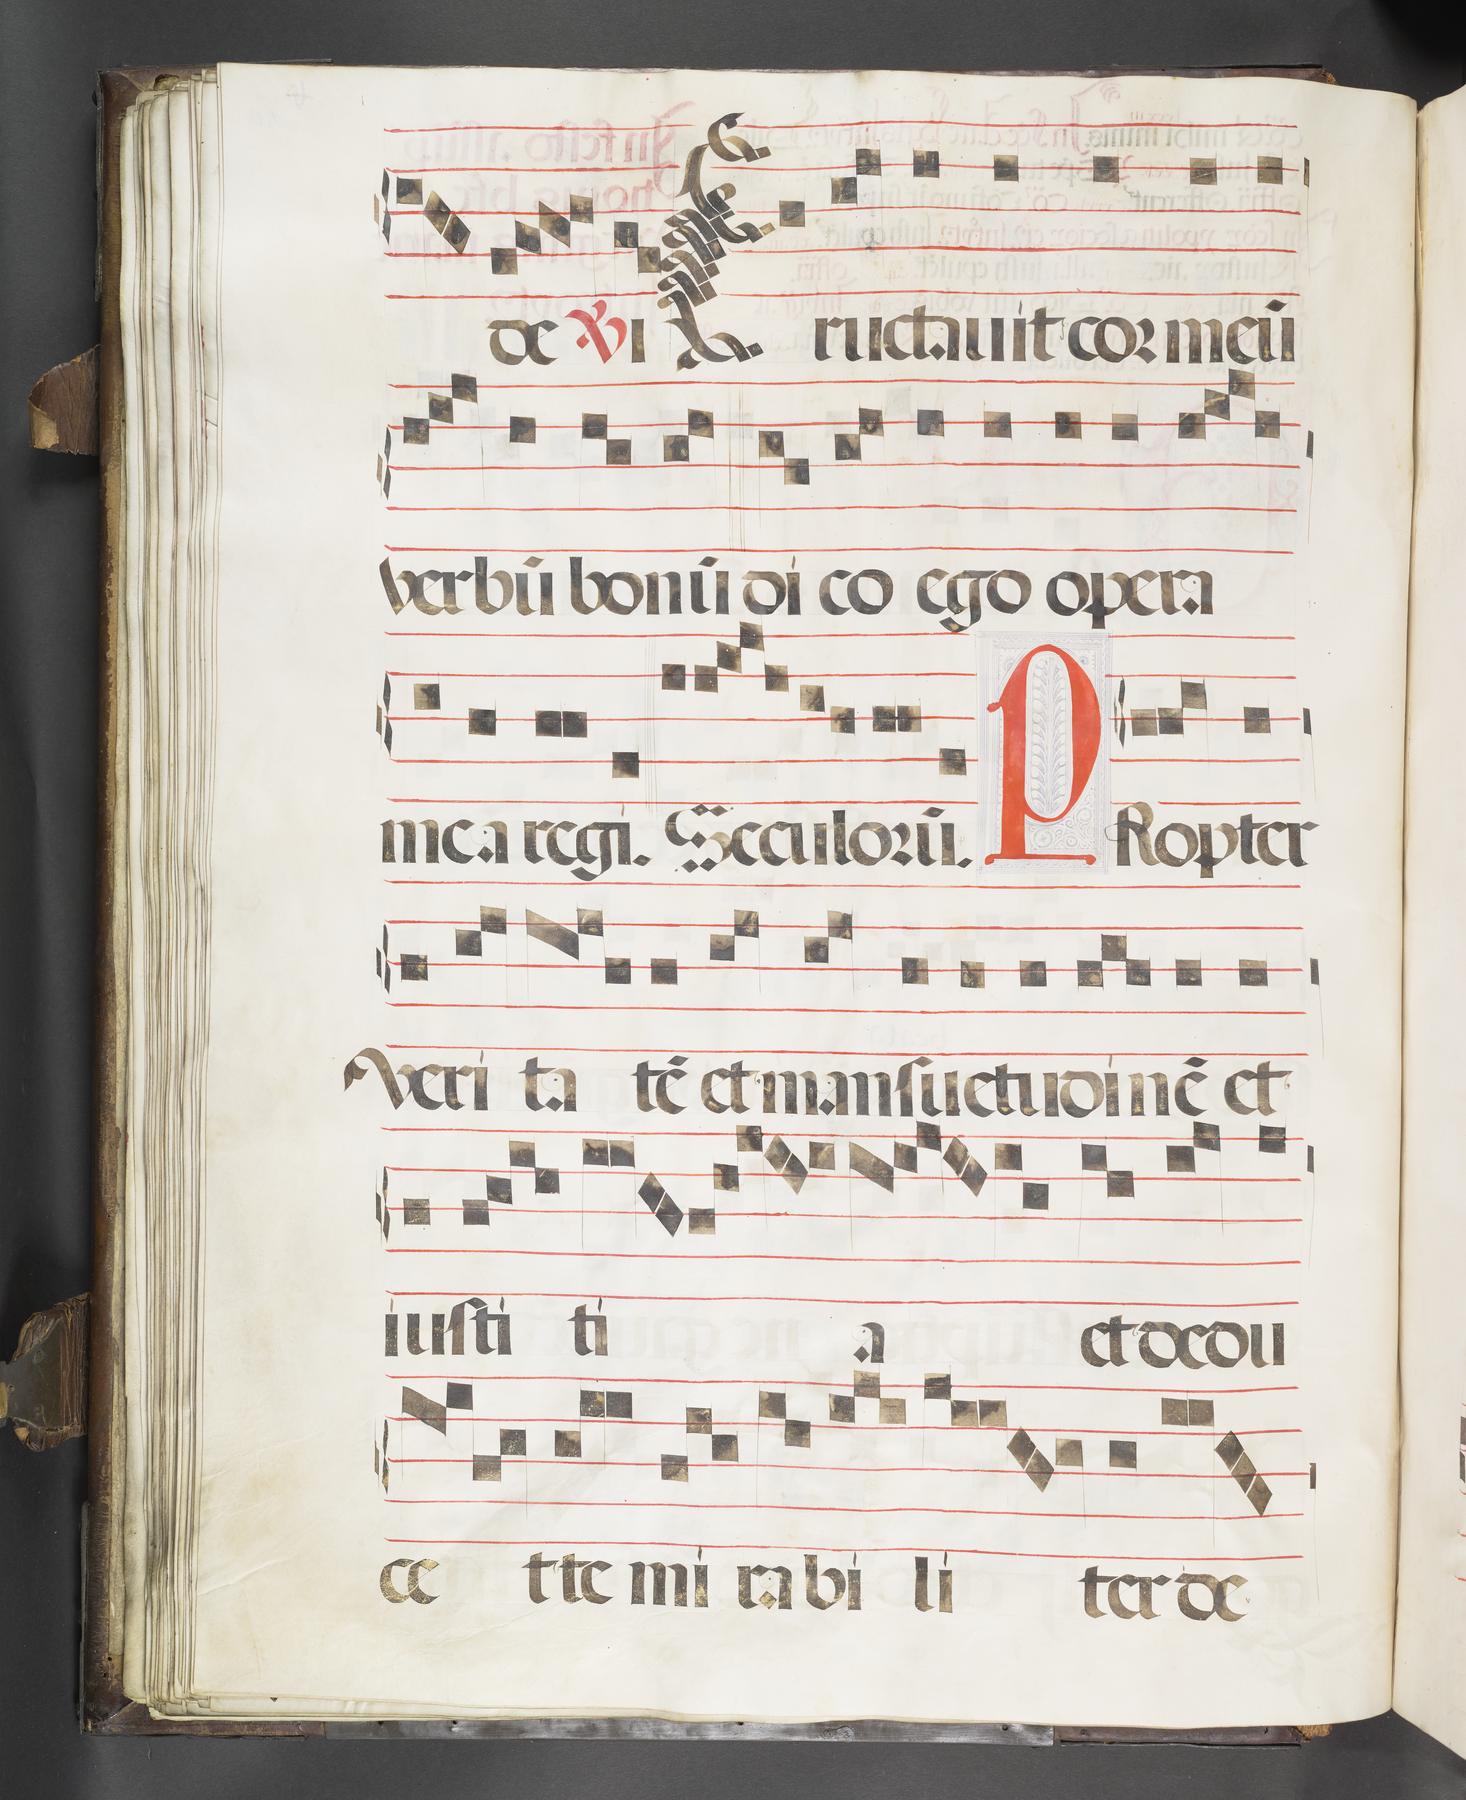 de ℣i Eructauit cor meū
verbū bonū di co ego opera
mea regi. Seculorū. PRopter
veri ta tē et mansuetudi nē et
iusti ti a et dedu
ce t te mi ra bi li ter de